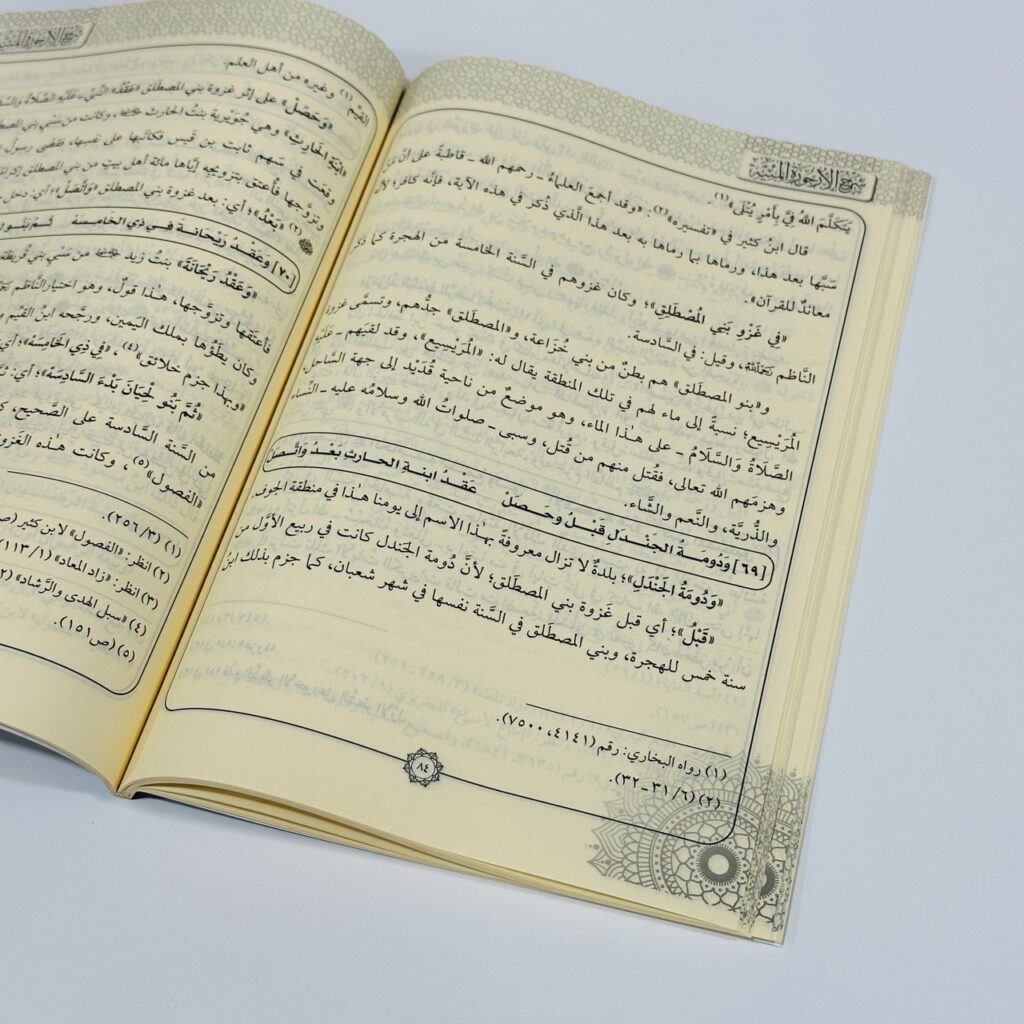 شرح الأرجوزة الميئية
يَتَكَلَّمَ اللهُ فِيَّ بِأَمْرٍ يُتْلَى»(١).
قال ابنُ كثير في «تفسيره»(٢): «وقد أجمع العلماءُ ـ رحمهم الله ـ قاطبةً على أنَّ مَنْ
سَبَّها بعد هذا، ورماها بما رماها به بعد هذا الَّذي ذُكر في هذه الآية، فإنَّه كافر؛ لأنَّه
معاندٌ للقرآن».
«فِي غَزْوِ بَنِي المُصْطَلِقِ»؛ وكان غزوهم في السَّنة الخامسة من الهجرة كما ذكر
النَّاظم رَحِمَهُ اللهُ، وقيل: في السَّادسة.
و«بنو المصطَلق» هم بطنٌ من بني خُزاعة، و«المصطَلق» جدُّهم، وتسمَّى غزوة
المُرَيْسِيع؛ نسبةً إلى ماء لهم في تلك المنطقة يقال له: «المُرَيْسِيع»، وقد لقيَهم ـ عَلَيْهِ
الصَّلَاةُ وَالسَّلَامُ ـ على هـٰذا الماء، وهو موضعٌ من ناحية قُدَيْد إلى جهة السَّاحل،
وهزمَهم الله تعالى، فقُتل منهم من قُتل، وسبى ـ صلواتُ الله وسلامُه عليه ـ النِّساء
والذُّريَّة، والنَّعم والشَّاء.
[٦٩] وَدُومَـةُ الجَنْدَلِ قَبْـلُ وحَـصَـلْ عَقْـدُ ابنـةِ الحـارثِ بَعْـدُ وَاتَّـصَلْ
«وَدُومَةُ الجَنْدَلِ»؛ بلدةٌ لا تزال معروفةً بهـٰذا الاسم إلى يومنا هـٰذا في منطقة الجوف.
«قَبْلُ»؛ أي قبل غَزوة بني المصطَلق؛ لأنَّ دُومة الجَندل كانت في ربيع الأوَّل من
سنة خمس للهجرة، وبني المصطَلق في السَّنة نفسها في شهر شعبان، كما جزم بذلك ابنُ
(١) رواه البخاري: رقم (٤١٤١، ٧٥٠٠).
(٢) (٦/ ٣١ ـ ٣٢).
٨٤
القيِّم(١) وغيره من أهل العلم.
«وَحَصَلْ» على إثر غزوة بني المصطلق «عَقْدُ» النَّبيِّ ـ عَلَيْهِ الصَّلَاةُ
«ابْنَةِ الحَارِثِ» وهي جُوَيْرية بنتُ الحارث، وكانت من سَبْي بني
وقعت في سَهم ثابت بن قَيس فكاتَبها على نفسها، فقضى رسول
وتزوَّجها فأَعتق بتزوُّجِه إيَّاها مائة أهل بيتٍ من بني المصطلق
(٢) «بَعْدُ»؛ أي: بعد غزوة بني المصطلق «وَاتَّصَلْ»؛ أي: دخل
[٧٠] وَعَقْـدُ رَيْحَانَةَ فـي ذِي الخامِسَهْ ثـمَّ بَنُـو
«وَعَقْدُ رَيْحَانَةَ» بنتُ زيد من سَبْي بني قُريظة
فأعتقَها وتزوَّجها، هـٰذا قولٌ، وهو اختيار النَّاظم
وكان يطَؤُها بملك اليَمين، ورجَّحه ابنُ القيِّم
«وبهذا جزم خلائق»(٤)، «فِي ذِي الخَامِسَهْ»؛ أي
«ثُمَّ بَنُو لِحْيَانَ بَدْءَ السَّادِسَهْ»؛ أي:
من السَّنة السَّادسة على الصَّحيح،
«الفصول»(٥)، وكانت هـٰذه الغزو
(١) (٣/ ٢٥٦).
(٢) انظر: «الفصول» لابن كثير
(٣) انظر: «زاد المعاد» (١/ ١١٣)
(٤) «سبل الهدى والرَّشاد»
(٥) (ص١٥١).